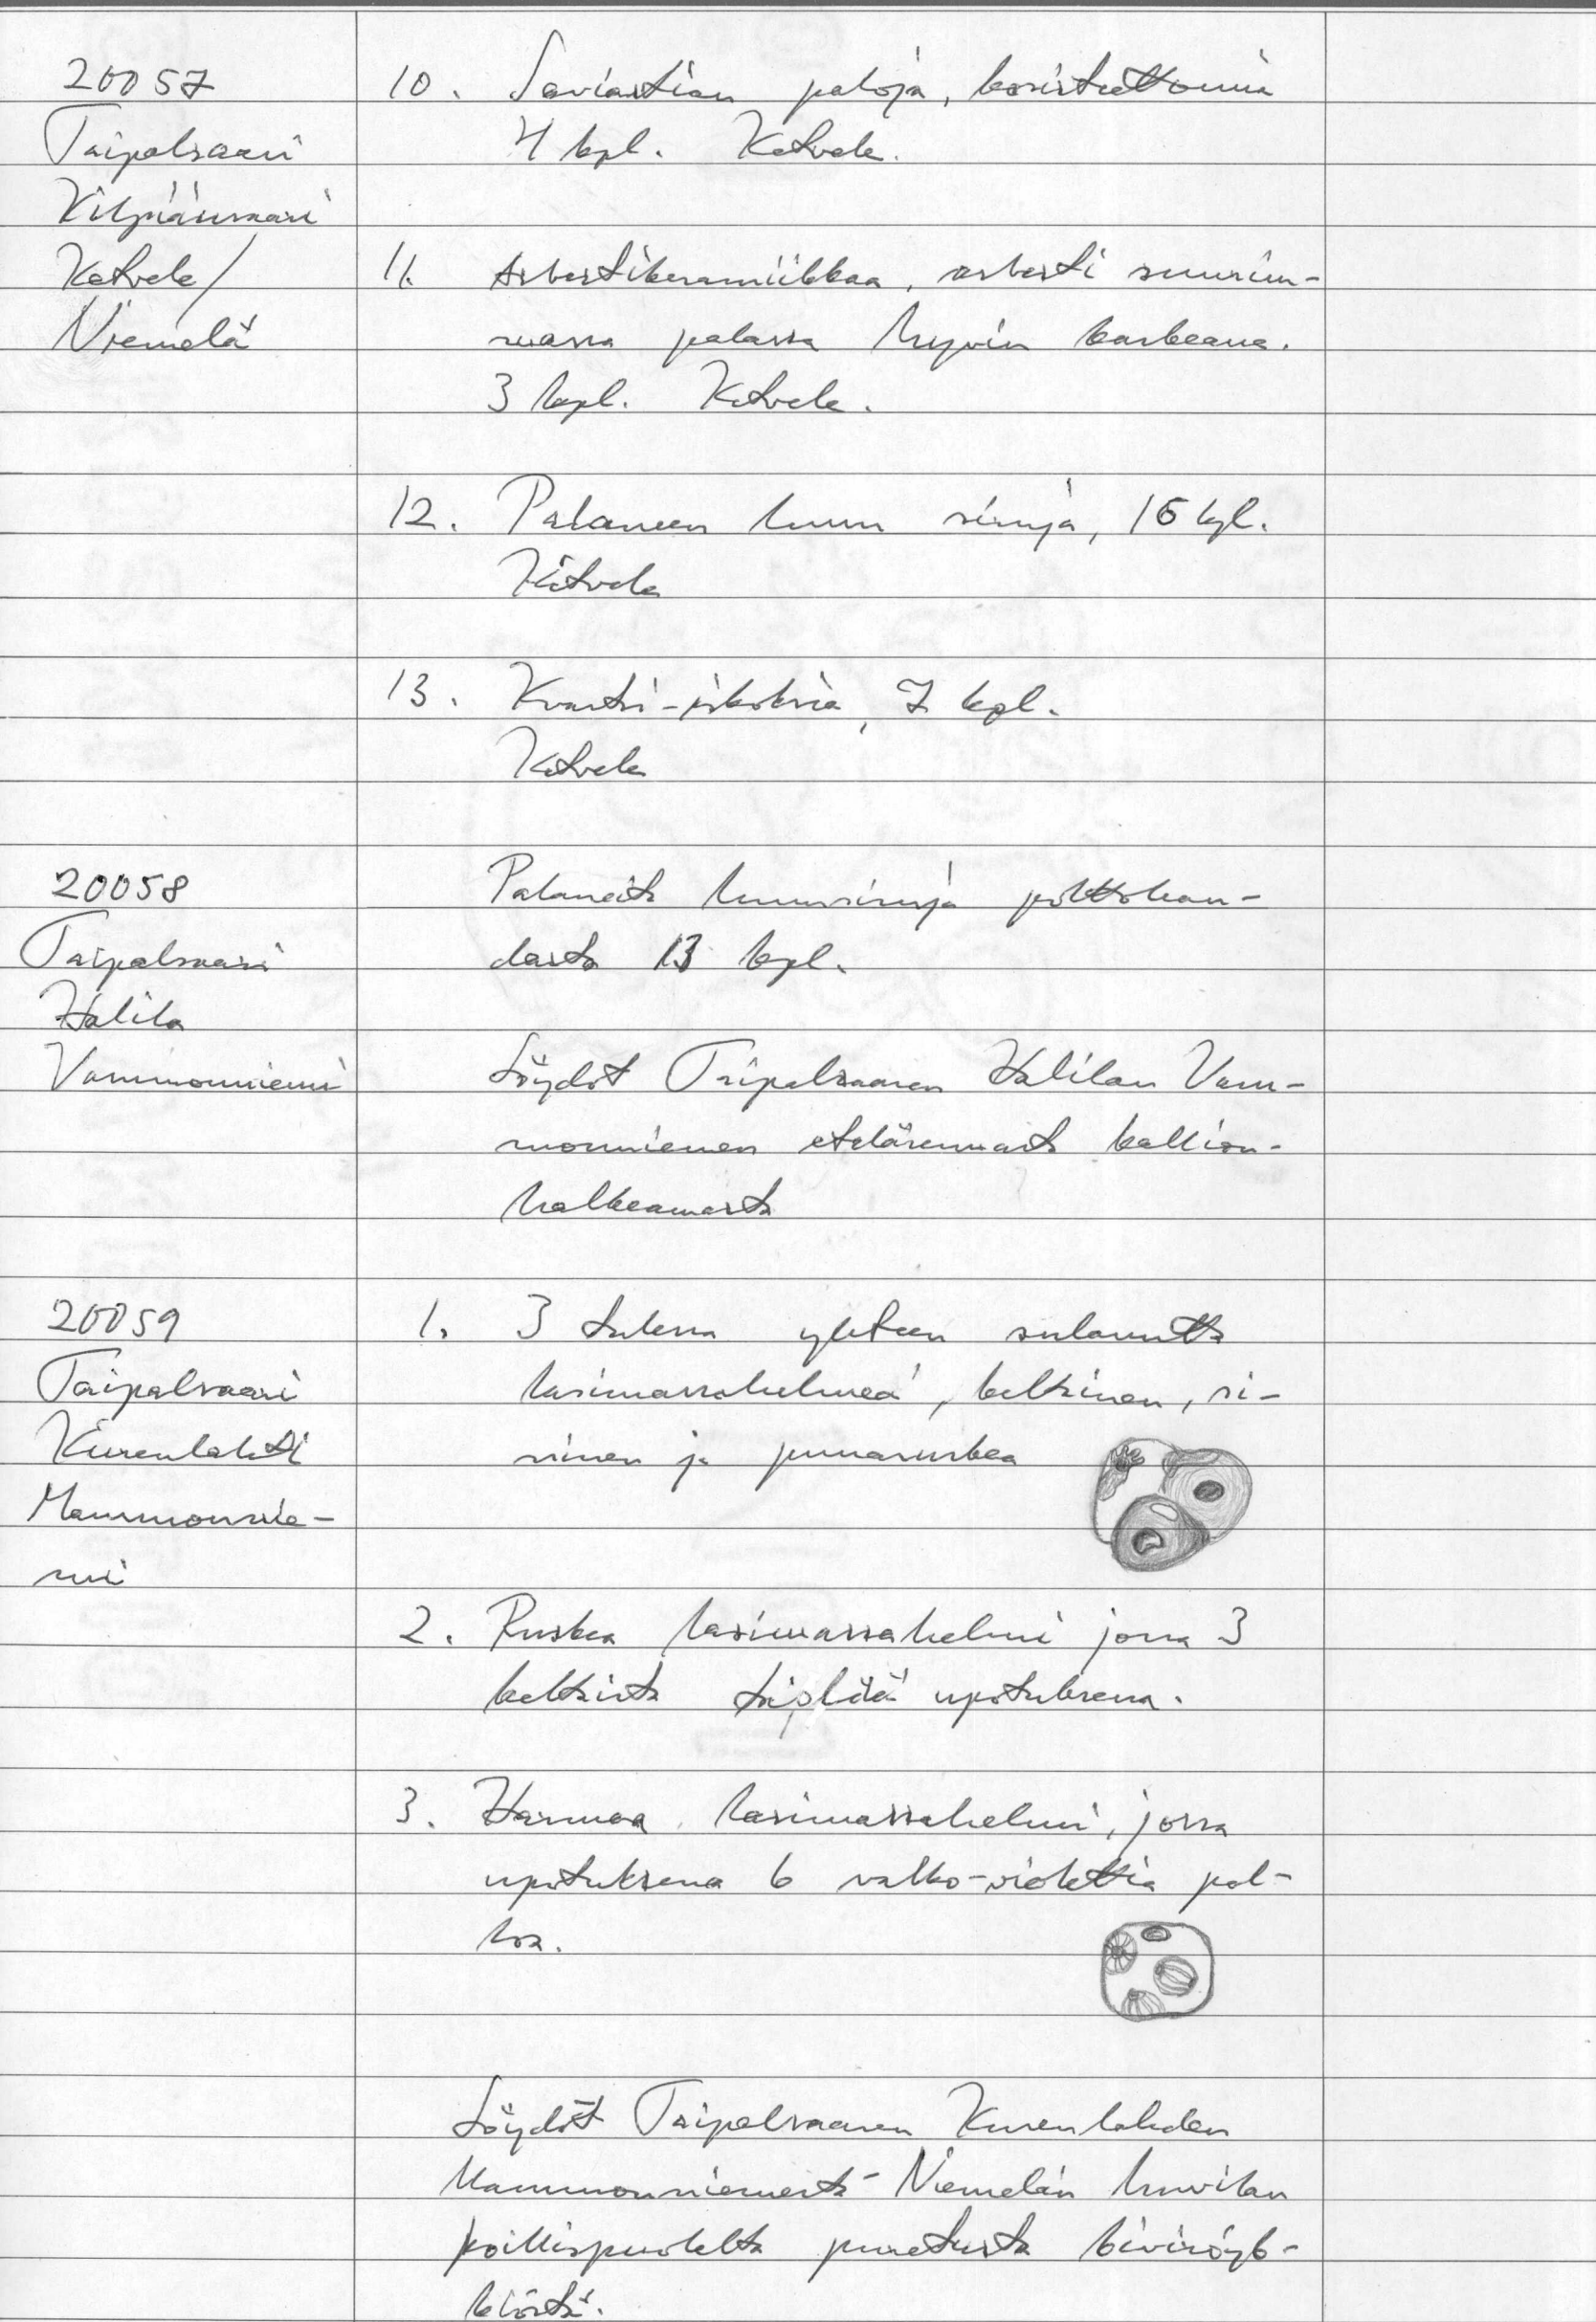 20057
Taipalsaari
Kilpiänsaari
Ketvele/
Niemelä
10. Saviastian paloja, koristeettomia
4 kpl. Ketvele.
11. Asbestikeramiikkaa, asbesti suurim-
massa palassa hyvin karkeana.
3 kpl. Ketvele.
12. Palaneen luun siruja, 16 kpl.
Ketvele
13. Kvartsi-iskoksia, 7 kpl.
Ketvele
20058
Taipalsaari
Halila
Vammonniemi
Palaneita luunsiruja polttohau-
dasta 13 kpl.
Löydöt Taipalsaaren Halilan Vam-
monniemen etelärinnasta kallion-
halkeamasta
20059
Taipalsaari
Kurenlahti
Mammonnie-
mi
1. 3 tulessa yhteen sulanutta
lasimassahelmeä, keltainen, si-
ninen ja punaruskea
2. Ruskea lasimassahelmi jossa 3
keltaista täplää upotuksena.
3. Harmaa lasimassahelmi, jossa
upotuksena 6 valko-violettia pal-
loa.
Löydöt Taipalsaaren Kurenlahden
Mammonniemestä Niemelän huvilan
koillispuolelta puretusta kiviröyk-
kiöstä.